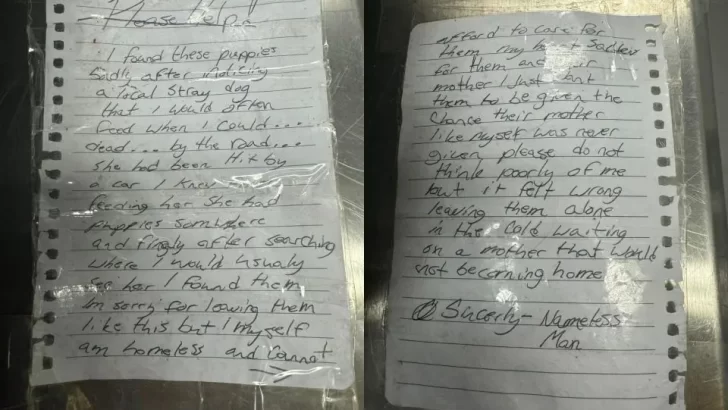 Please Help!!
I found these puppies
Sadly after
a local stray dog
that I would often
feed when I could....
dead... by the road...
She had been Hit by
a car I Knew
feeding her She had
Puppies somwhere
and finaly after searching
where I would usualy
see her I found them
Im sorry for leaving them
like this but I myself
am homeless and Cannot
afford to care for
them my heart
for them and
mother I Just
them to be given the
Chance their mother
like myself was never
given please do not
think poorly of me
but it felt wrong
leaving them alone
in the cold waiting
on a mother that would
not becoming home
Sincerly- Nameless
Man